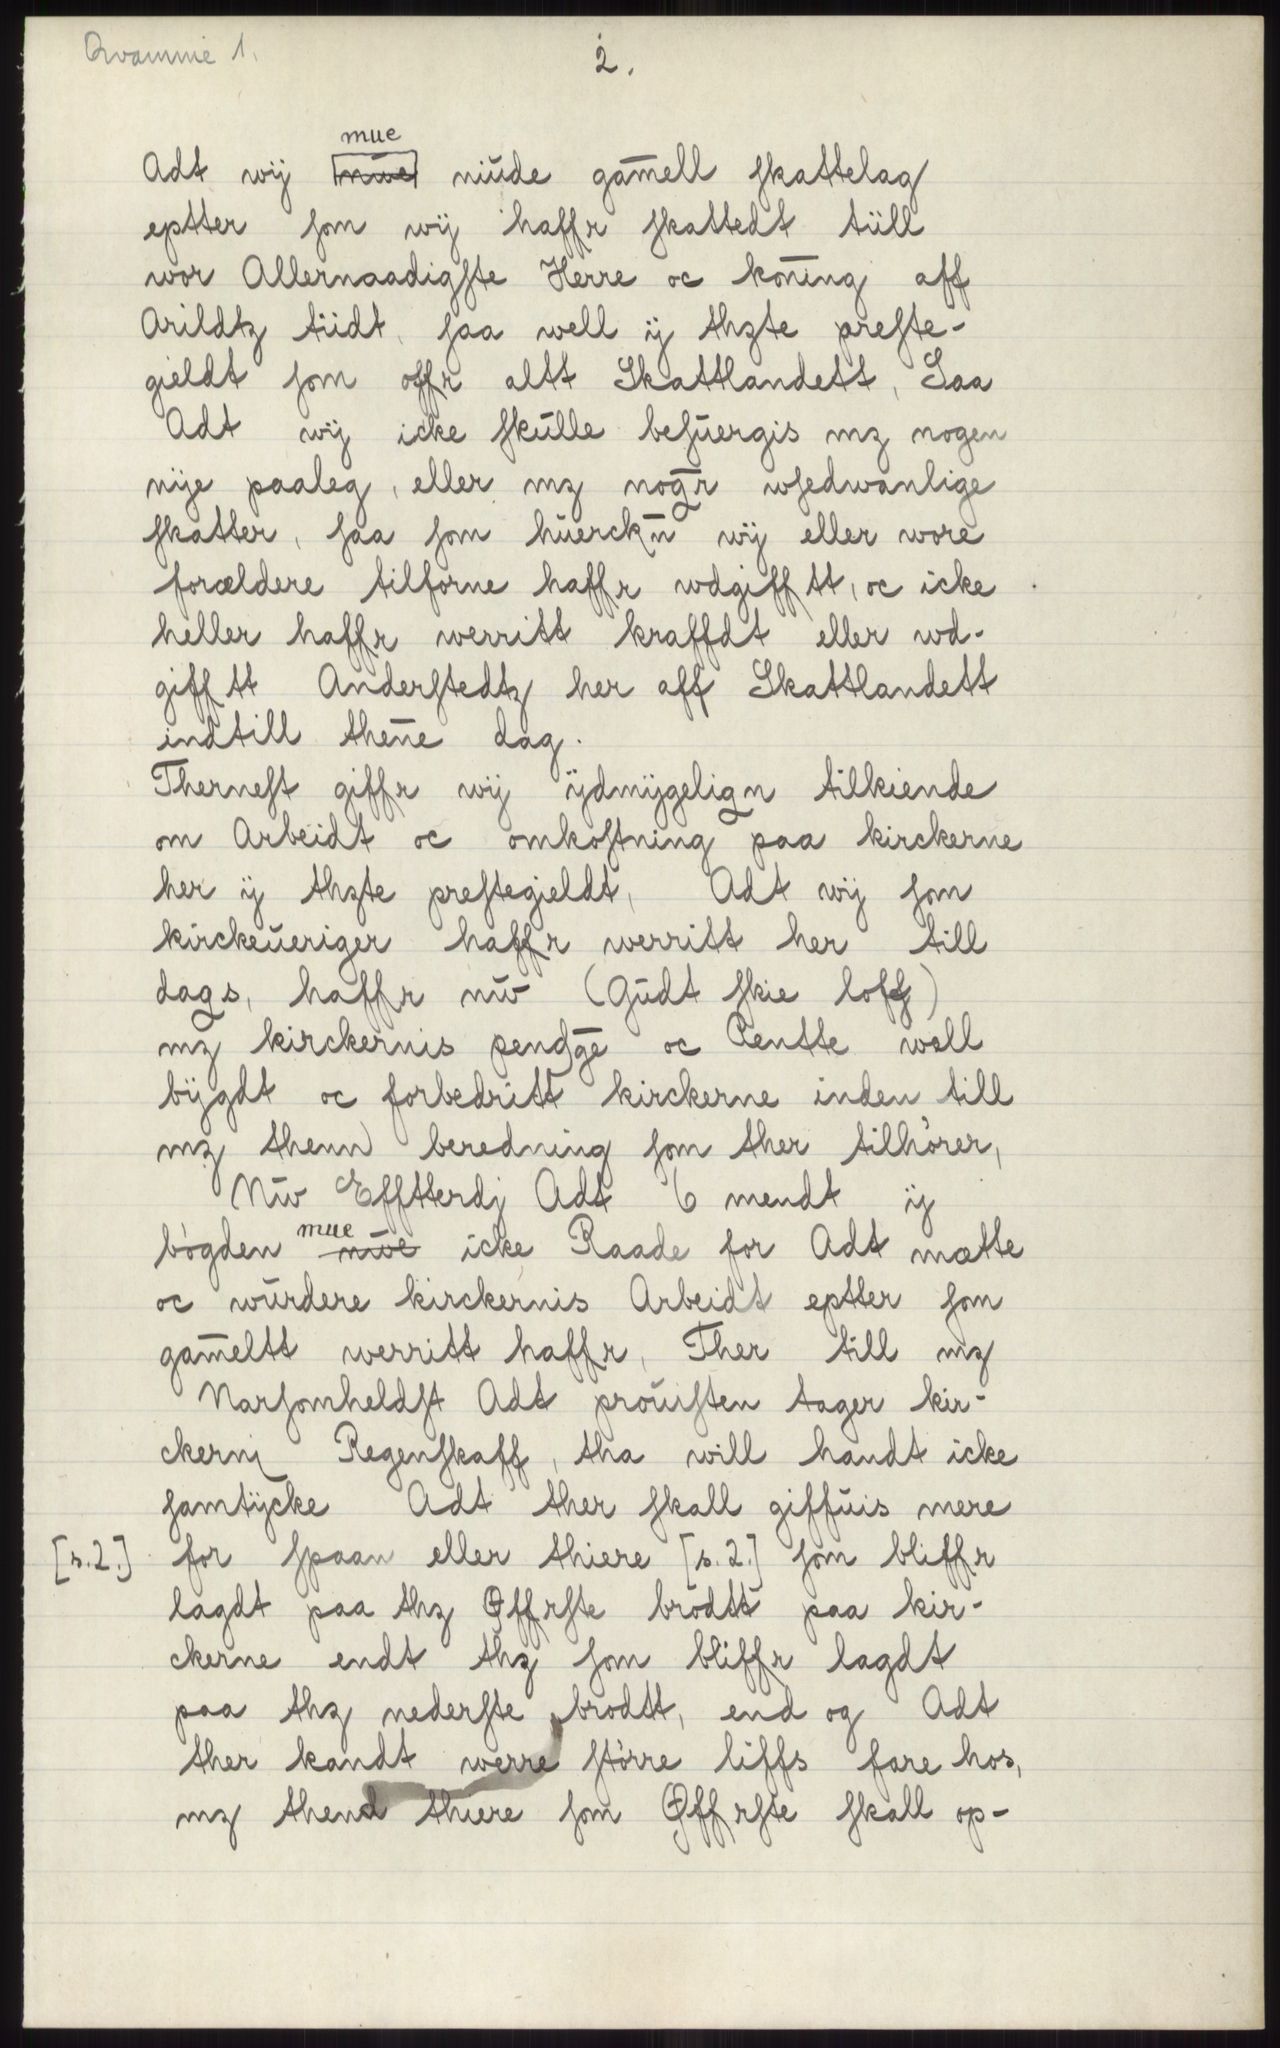 Qvamme 1.
2.
mue
Adt wij nwe niude gam̄ell skattelag
eptter som wij haffr skattedt tiill
wor Allernaadigste Herre oc kon̄ing aff
Arildtz tiidt, saa well ij thzte preste-
gieldt som offr altt Skattlandett, Saa
Adt wij icke skulle besuergis mz nogen
nije paaleg, eller mz nogr̄ wsedwanlige
skatter, saa som huerckn̄ wij eller wore
forældere tilforne haffr wdgifftt, oc icke
heller haffr werritt kraffdt eller wd-
gifftt Anderstedtz her aff Skattlandett
indtill then̄e dag.
Thernest giffr wij ijdmijgelign tilkiende
om Arbeidt oc omkostning paa kirckerne
her ij thzte prestegieldt, Adt wij som
kirckeueriger haffr werritt her till
dags, haffr nw (Gudt skie loff)
mz kirckernis pendḡe oc Rentte well
bijgdt oc forbedritt kirckerne inden till
mz thenn beredning som ther tilhörer,
Nw Efftterdj Adt 6 mendt ij
mue
bögden nwe icke Raade for Adt mætte
oc wurdere kirckernis Arbeidt eptter som
gam̄eltt werritt haffr, Ther till mz
Narsomheldst Adt prouisten tager kir-
ckernj Regenskaff, tha will handt icke
samtijcke Adt ther skall giffuis mere
[s.2.] for spaan eller thiere [s.2.] som bliffr
lagdt paa thz Øffrste brödtt paa kir-
ckerne endt thz som bliffr lagdt
paa thz nederste brodtt, end og Adt
ther kandt werre större liffs fare hos,
mz thend thiere som Øffrste skall op-